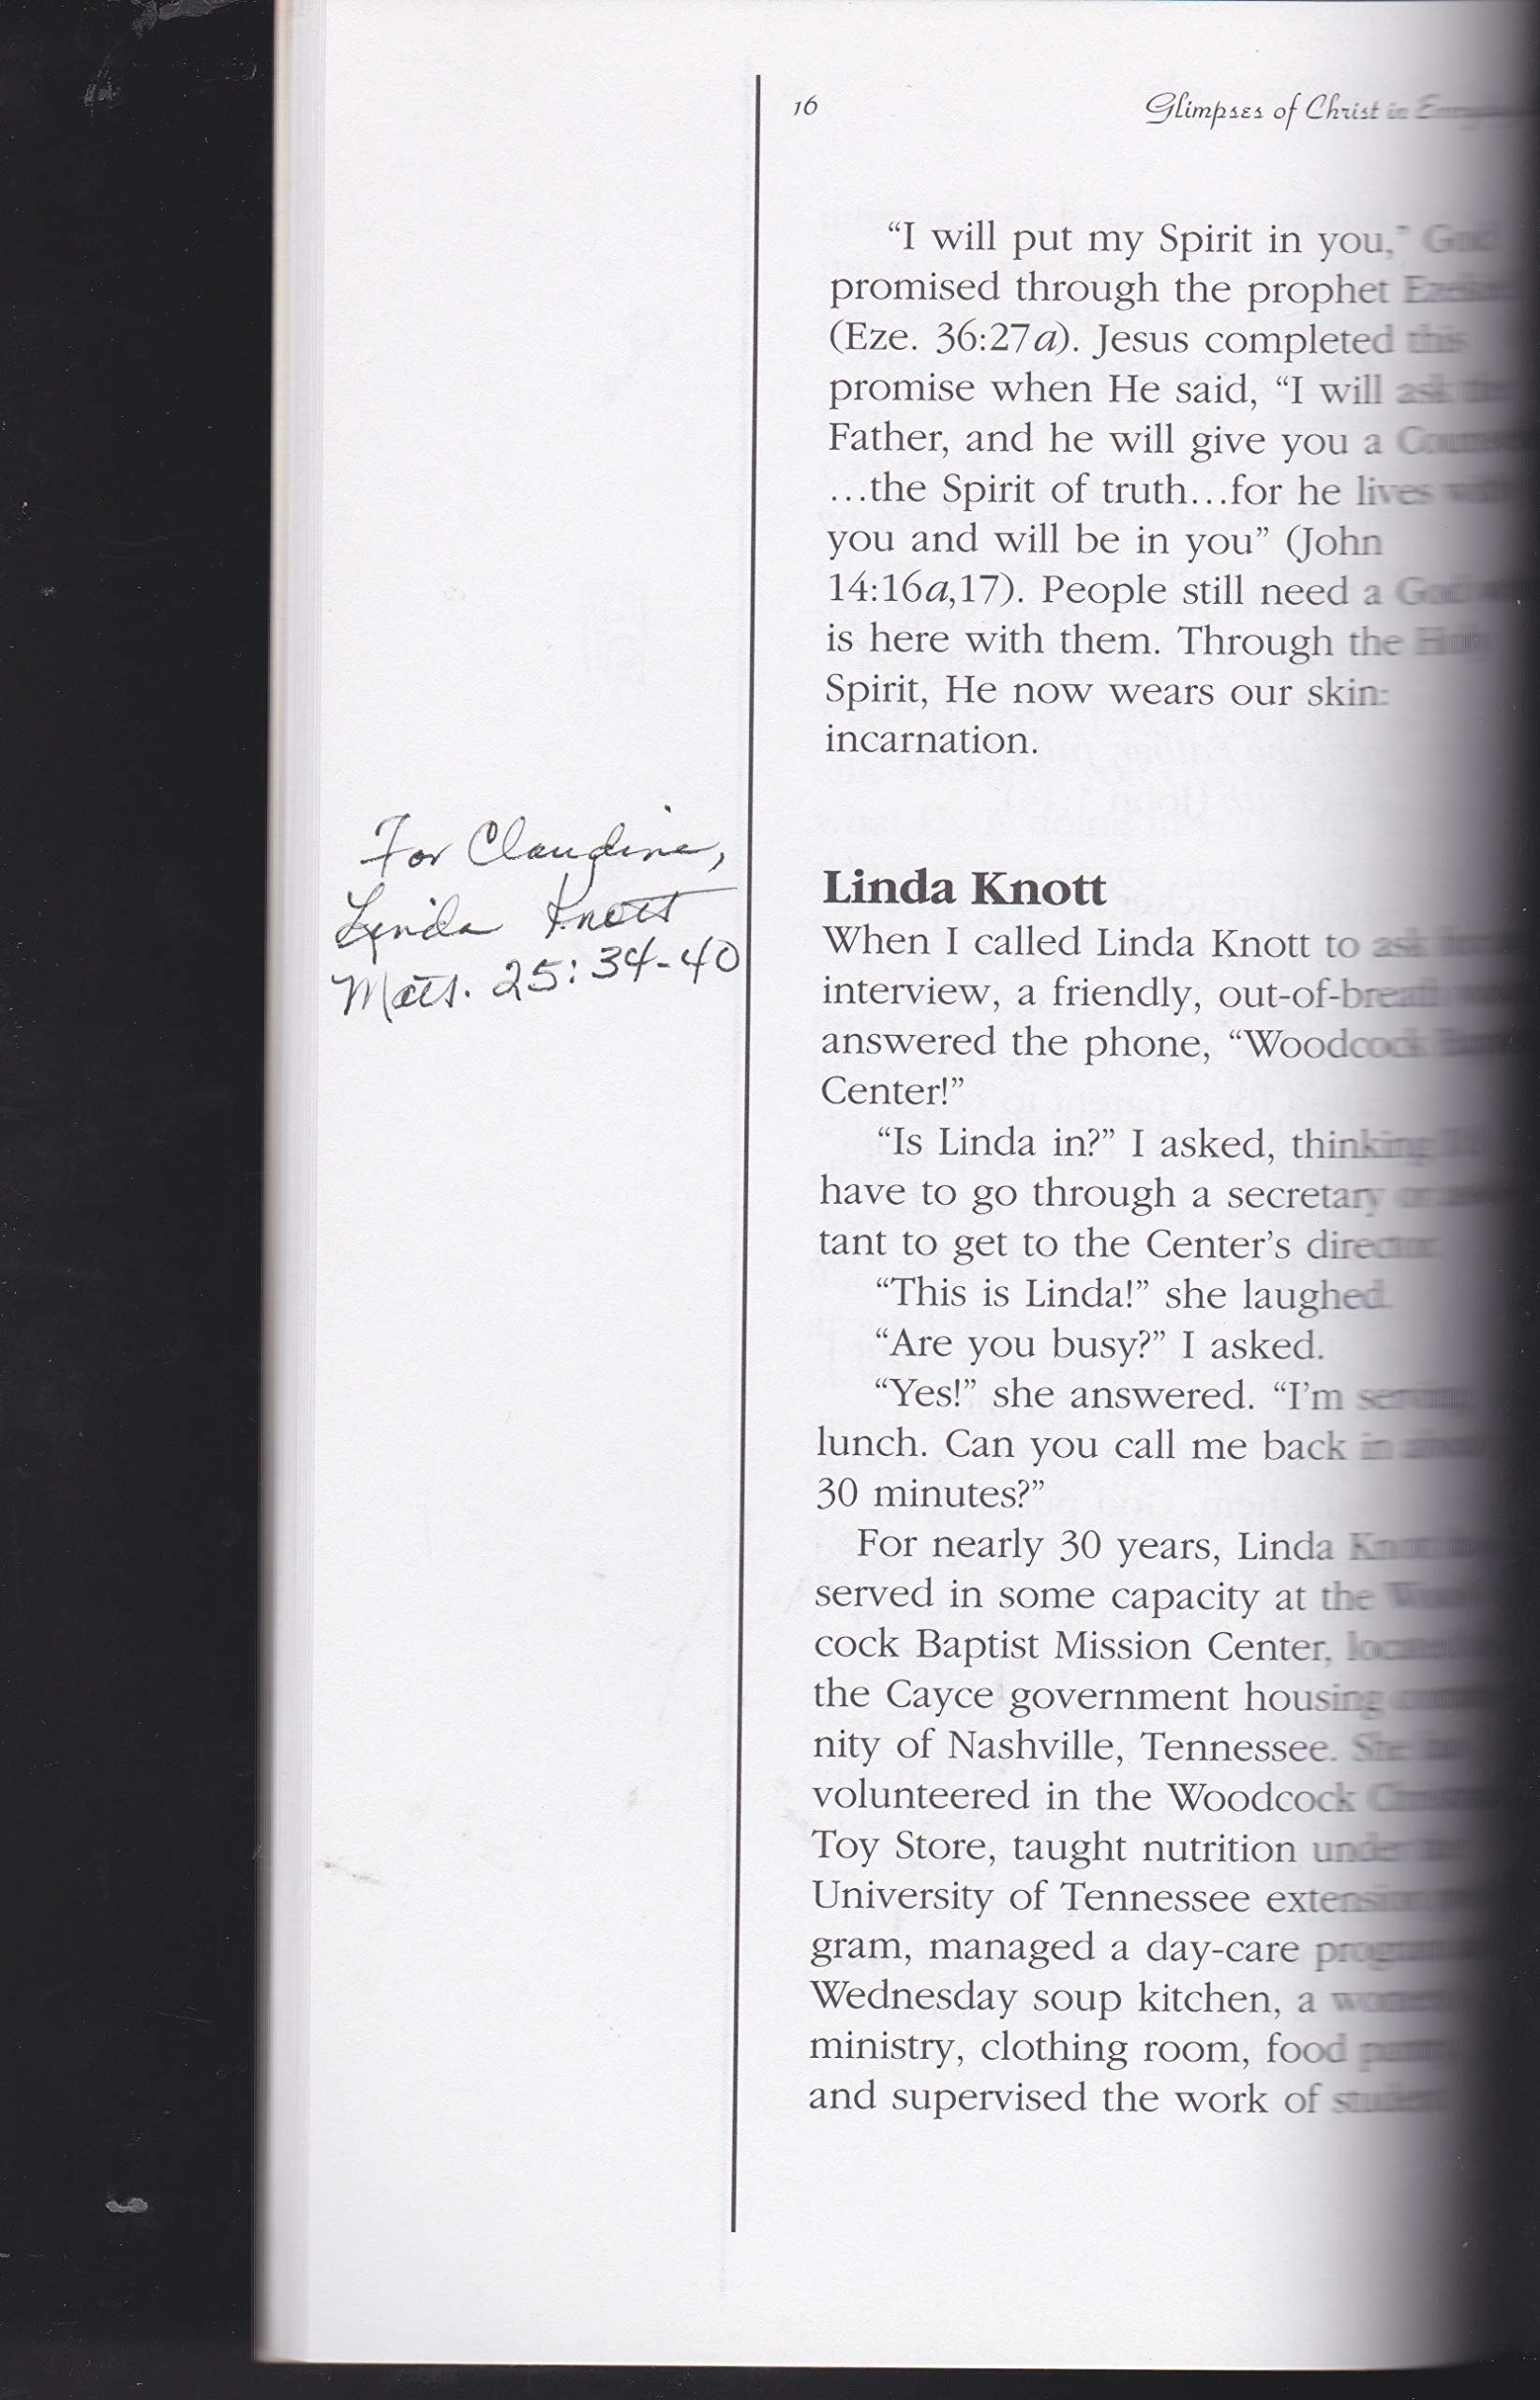 16
Glimpses of Christ in
“I will put my Spirit in you,” God
promised through the prophet
(Eze. 36:27a). Jesus completed this
promise when He said, “I will ask the
Father, and he will give you a
…the Spirit of truth…for he lives with
you and will be in you” (John
14:16a,17). People still need a God
is here with them. Through the Holy
Spirit, He now wears our skin:
incarnation.
For Claudine,
Linda Knott
Matt. 25:34-40
Linda Knott
When I called Linda Knott to ask
interview, a friendly, out-of-breath
answered the phone, “Woodcock
Center!”
“Is Linda in?” I asked, thinking
have to go through a secretary or
tant to get to the Center’s director.
“This is Linda!” she laughed.
“Are you busy?” I asked.
“Yes!” she answered. “I’m serving
lunch. Can you call me back in about
30 minutes?”
For nearly 30 years, Linda Knott
served in some capacity at the
cock Baptist Mission Center, located
the Cayce government housing
nity of Nashville, Tennessee. She
volunteered in the Woodcock
Toy Store, taught nutrition under the
University of Tennessee extension
gram, managed a day-care program
Wednesday soup kitchen, a
ministry, clothing room, food
and supervised the work of